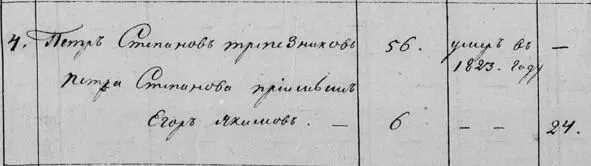 4. Петръ Степановъ трапезниковъ 56. умеръ въ —
1823. году
Петра Степанова пріимышъ
Егоръ Якимовъ. — 6 — — 24.